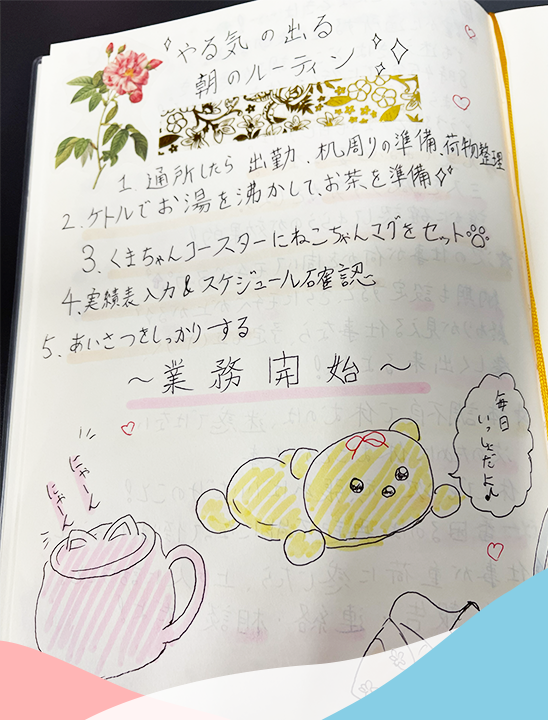 やる気の出る
朝のルーティン
1 通所したら 出勤、机周りの準備、荷物整理
2. ケトルでお湯を沸かして、お茶を準備
3. くまちゃんコースターにねこちゃんマグをセット
4. 実績表入力&スケジュール確認
5. あいさつをしっかりする
～業務開始～
毎日
いっしょだよ♪
にゃーん
にゃーん